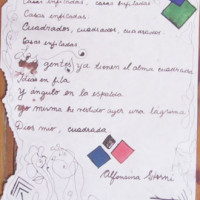 Casas enfiladas, casas enfiladas,
Casas enfiladas.
Cuadrados, cuadrados, cuadrados.
Casas enfiladas.
gentes ya tienen el alma cuadrada
Ideas en fila
y ángulo en la espalda
yo misma he vertido ayer una lágrima
Dios mio, cuadrada
Alfonsina Storni